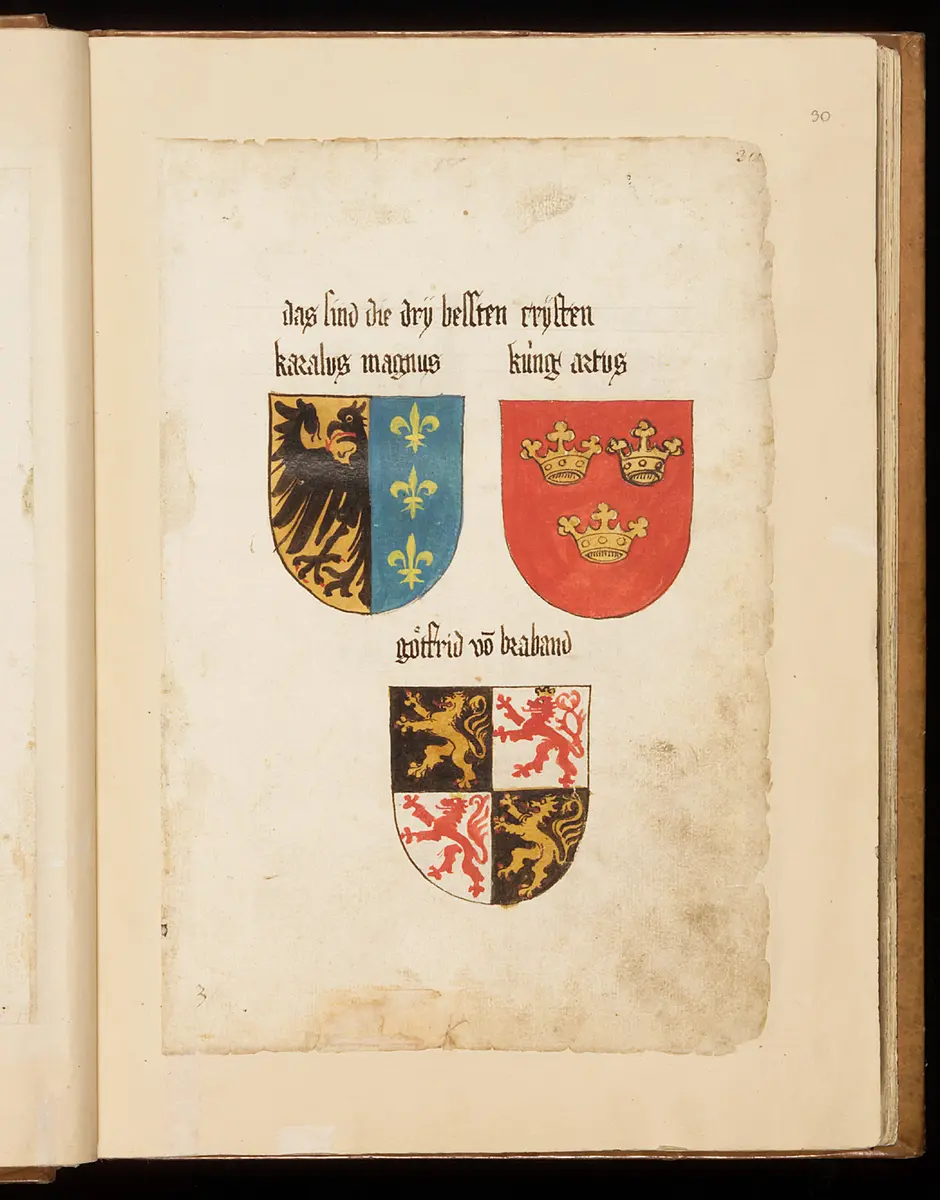 30
das sind die drÿ bessten crÿsten
karalus magnus kúng artus
gőtfrid vō braband
3